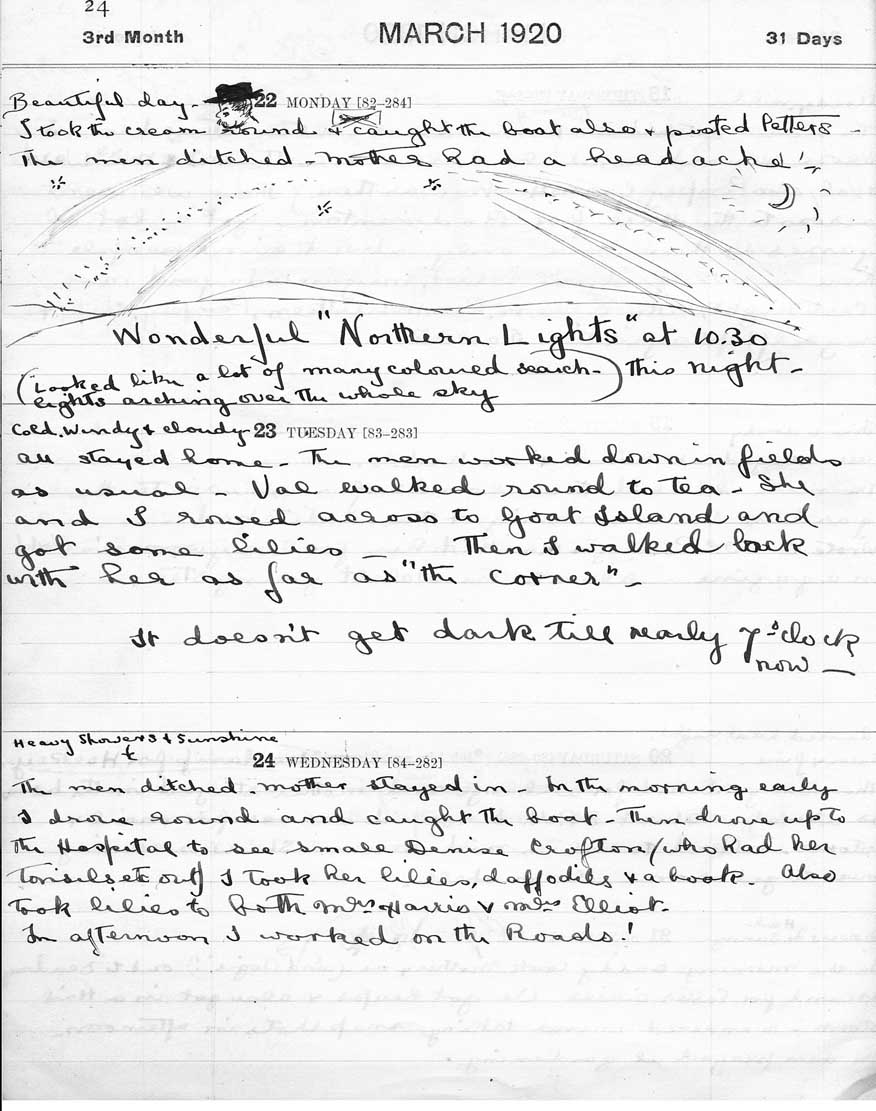 24
3rd Month MARCH 1920 31 Days
Beautiful day - 22 MONDAY [82-284]
I took the cream round & caught the boat also & posted letters -
The men ditched - mother had a headache! -
Wonderful "Northern Lights" at 10.30
(Looked like a lot of many coloured search- ) this night -
lights arching over the whole sky
Cold, Windy & cloudy 23 TUESDAY [83-283]
all stayed home - The men worked down in fields
as usual - Val walked round to tea - She
and I rowed across to Goat Island and
got some lilies - Then I walked back
with her as far as "the corner" -
It doesn't get dark till nearly 7 o'clock
now -
Heavy Showers & Sunshine
24 WEDNESDAY [84-282]
The men ditched. mother stayed in - In the morning early
I drove round and caught the boat - Then drove up to
the Hospital to see small Denise Crofton (who had her
tonsils etc out) I took her lilies, daffodils & a book. Also
took lilies to both Mrs Harris & Mrs Elliot.
In afternoon I worked on the Roads!